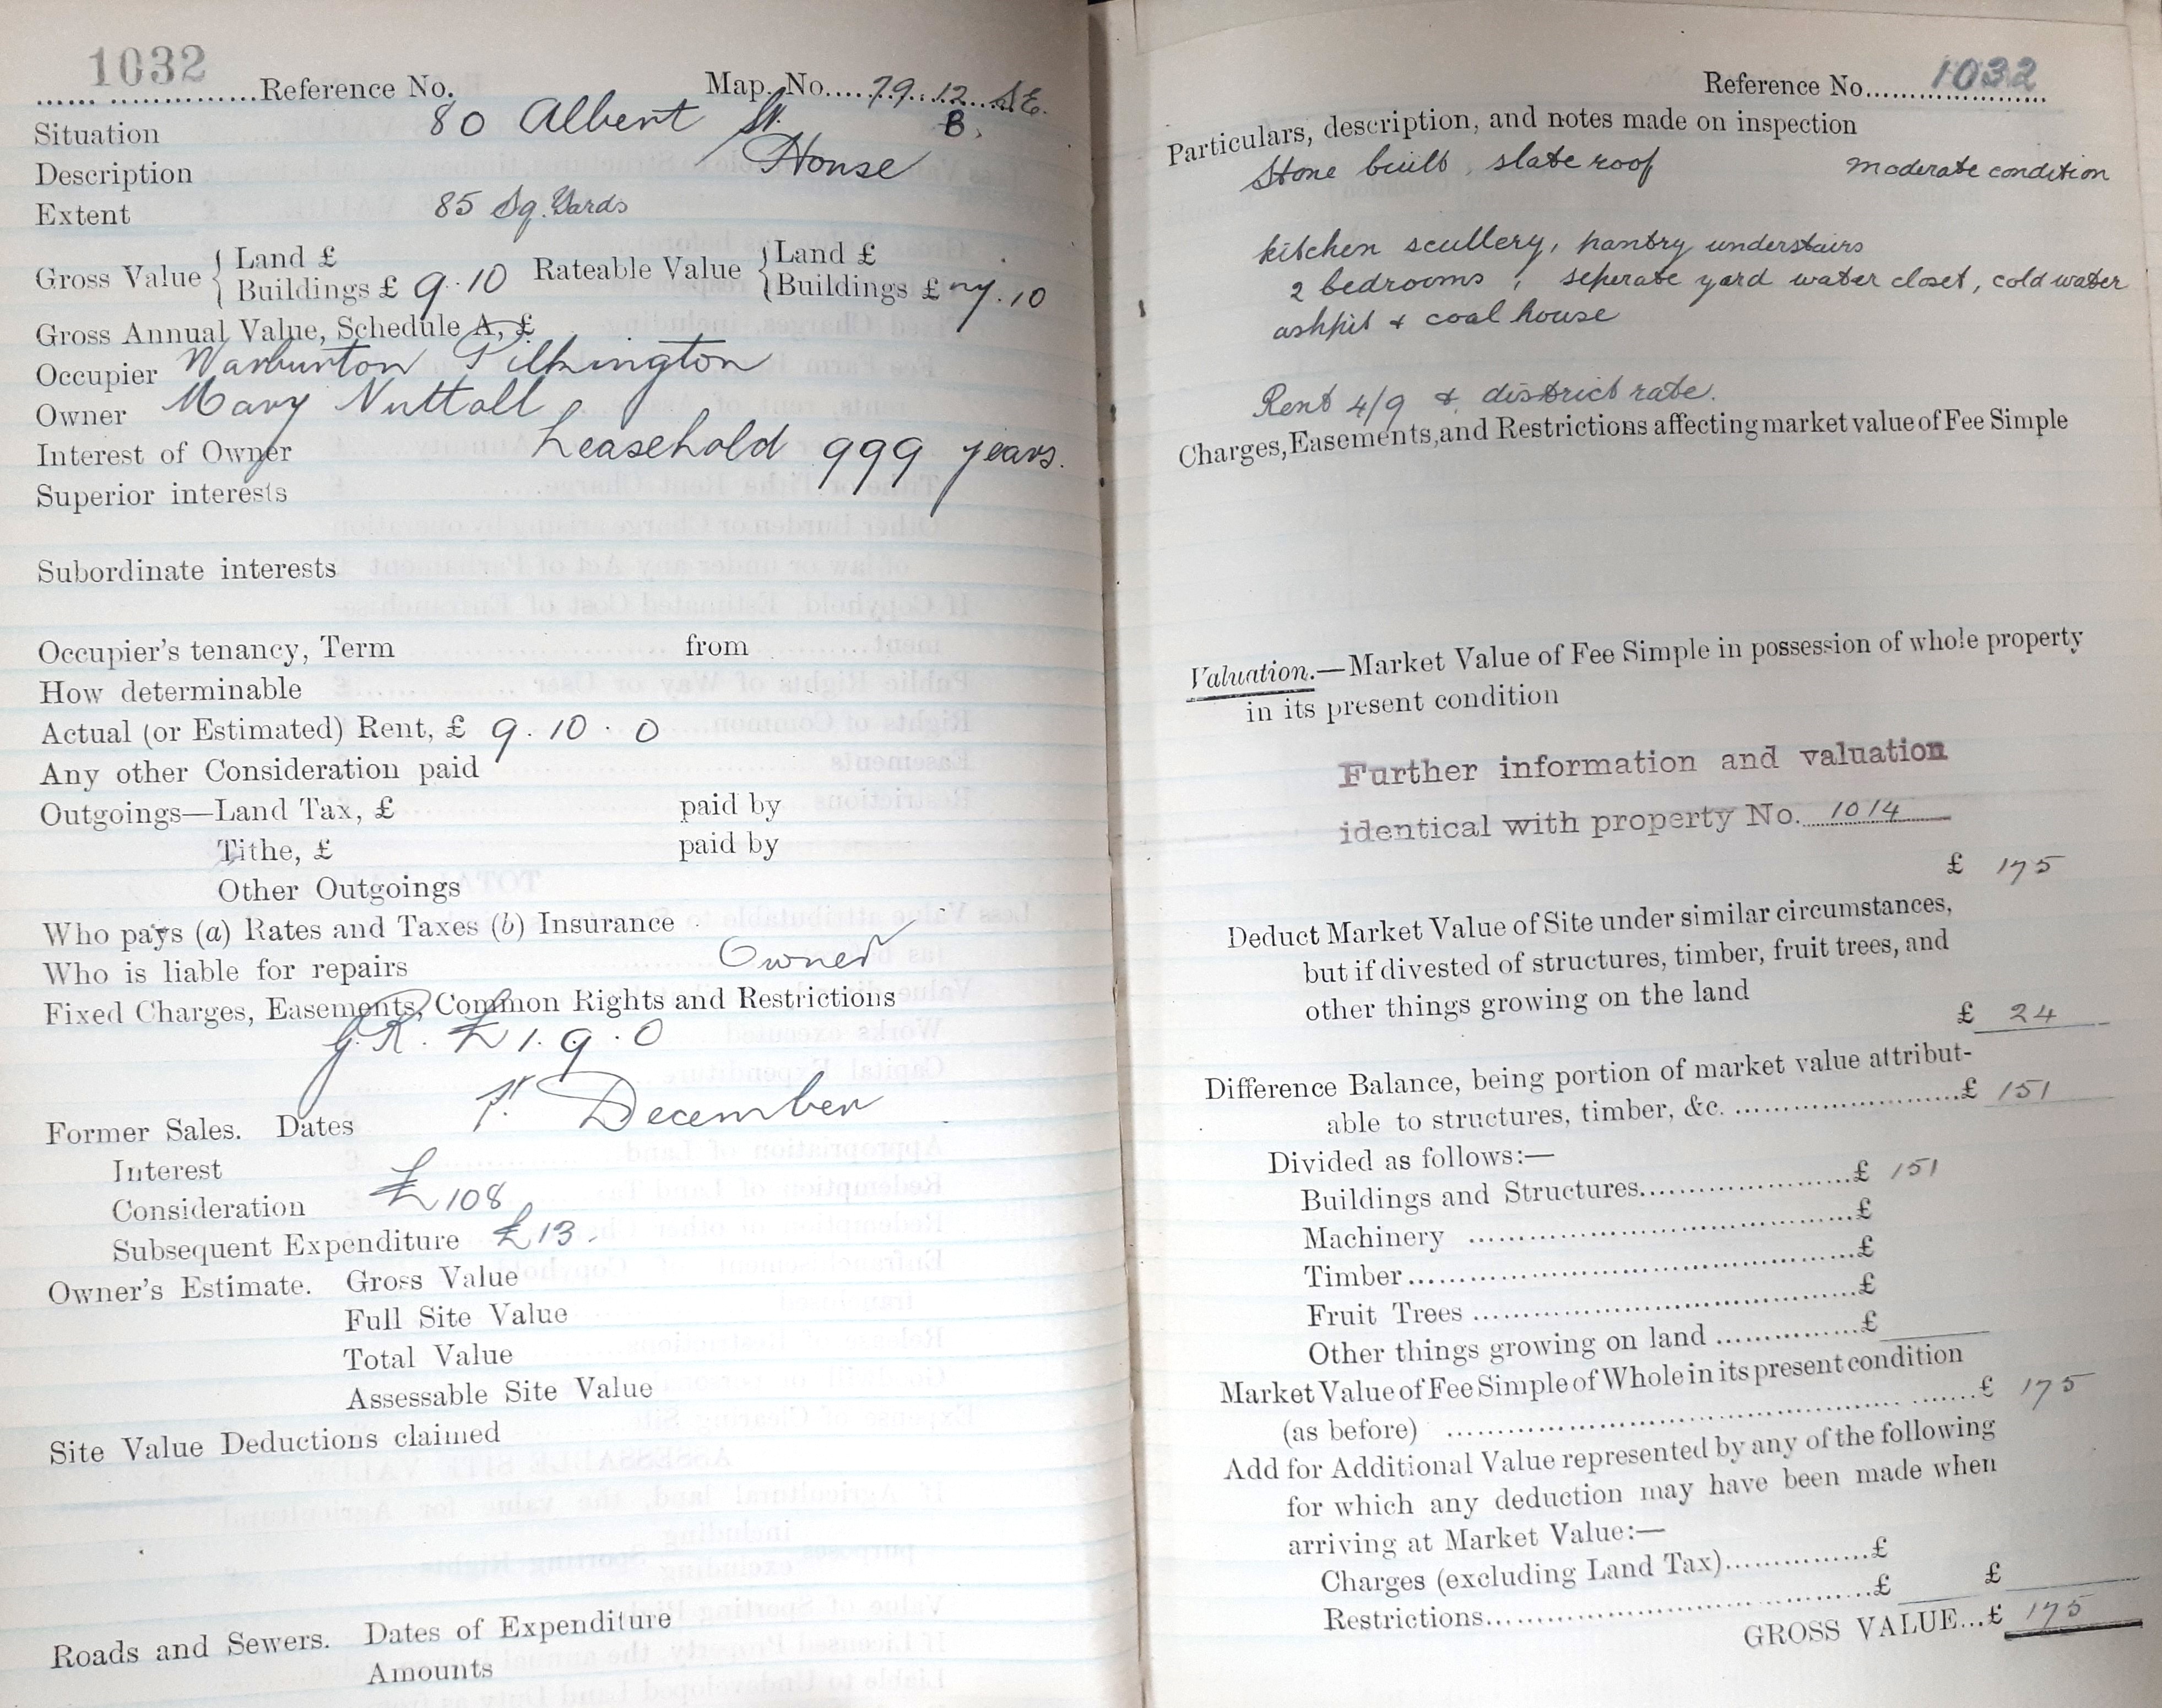 1032
Reference No. Map. No. 79.12 S.E.
Situation 80 Albert St. B.
Description House
Extent 85 Sq. Yards
Gross Value { Land £ Rateable Value { Land £
Buildings £ 9.10 Buildings £ 7.10
Gross Annual Value, Schedule A, £
Occupier Warburton Pilkington
Owner Mary Nuttall
Interest of Owner Leasehold 999 years.
Superior interests
Subordinate interests
Occupier's tenancy, Term from
How determinable
Actual (or Estimated) Rent, £ 9.10.0
Any other Consideration paid
Outgoings—Land Tax, £ paid by
Tithe, £ paid by
Other Outgoings
Who pays (a) Rates and Taxes (b) Insurance
Who is liable for repairs Owner
Fixed Charges, Easements, Common Rights and Restrictions
G.R. £1.9.0
Former Sales. Dates December
Interest
Consideration £108
Subsequent Expenditure £13.
Owner's Estimate. Gross Value
Full Site Value
Total Value
Assessable Site Value
Site Value Deductions claimed
Roads and Sewers. Dates of Expenditure
Amounts
Reference No. 1032
Particulars, description, and notes made on inspection
Stone built, slate roof moderate condition
kitchen scullery, pantry understairs
2 bedrooms, seperate yard water closet, cold water
ashpit & coal house
Rent 4/9 & district rate.
Charges, Easements, and Restrictions affecting market value of Fee Simple
Valuation.—Market Value of Fee Simple in possession of whole property
in its present condition
Further information and valuation
identical with property No. 1014
£ 175
Deduct Market Value of Site under similar circumstances,
but if divested of structures, timber, fruit trees, and
other things growing on the land
£ 24
Difference Balance, being portion of market value attribut-
able to structures, timber, &c. £ 151
Divided as follows:—
Buildings and Structures £ 151
Machinery £
Timber £
Fruit Trees £
Other things growing on land £
Market Value of Fee Simple of Whole in its present condition
(as before) £ 175
Add for Additional Value represented by any of the following
for which any deduction may have been made when
arriving at Market Value:—
Charges (excluding Land Tax) £
Restrictions £ £
GROSS VALUE...£ 175